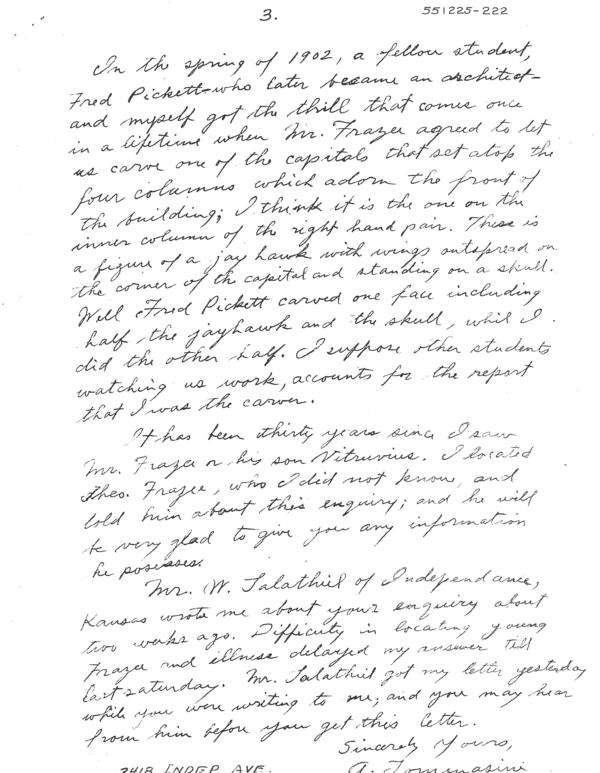 3.
551225-222
In the spring of 1902, a fellow student,
Fred Pickett-who later became an architect-
and myself got the thrill that comes once
in a lifetime when Mr. Frazee agreed to let
us carve one of the capitals that set atop the
four columns which adorn the front of
the building; I think it is the one on the
inner column of the right hand pair. There is
a figure of a jay hawk with wings outspread on
the corner of the capital and standing on a skull.
Well Fred Pickett carved one face including
half the jayhawk and the skull, while I
did the other half. I suppose other students
watching us work, accounts for the report
that I was the carver.
It has been thirty years since I saw
Mr. Frazee or his son Vitruvius. I located
Theo. Frazee, who I did not know, and
told him about this enquiry; and he will
be very glad to give you any information
he posesses.
Mr. W. Salathiel of Independance,
Kansas wrote me about your enquiry about
two weeks ago. Difficulty in locating young
Frazee and illness delayed my answer till
last saturday. Mr. Salathiel got my letter yesterday
while you were writing to me, and you may hear
from him before you get this letter.
Sincerely Yours,
2418 INDEP AVE.
A. Tommasini